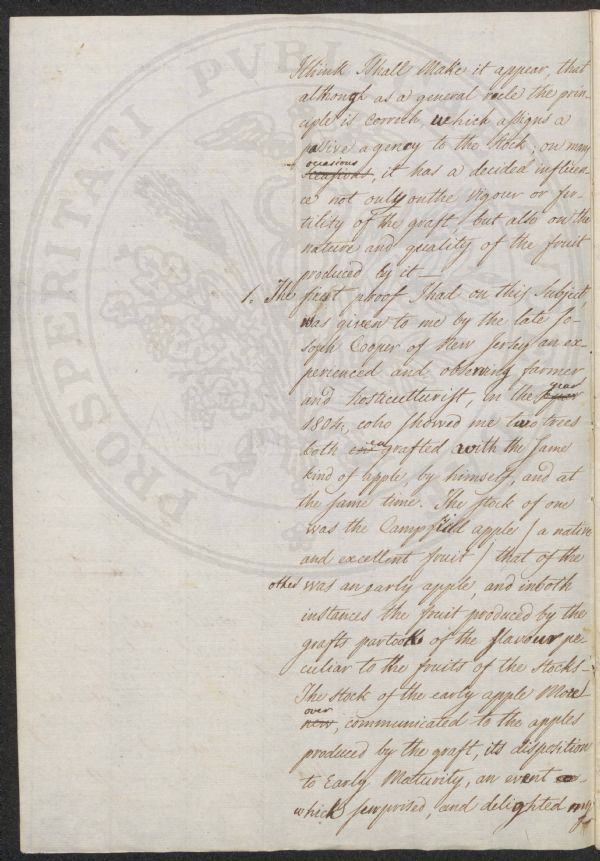 PROSPERITATI PUBLI
I think I shall make it appear, that
although as a general rule the prin-
ciple is correct, which assigns a
passive agency to the stock, on many
occasions
, it has a decided influen-
ce not only on the vigour or fer-
tility of the graft, but also on the
nature and quality of the fruit
produced by it —
1. The first proof I had on this subject
was given to me by the late Jo-
seph Cooper of New Jersey an ex-
perienced and observing farmer
year
and horticulturist, in the
1804, who showed me two trees
both grafted with the same
kind of apple, by himself, and at
the same time. The stock of one
was the Campfield apple / a native
and excellent fruit / that of the
other was an early apple, and in both
instances the fruit produced by the
grafts partook of the flavour pe
culiar to the fruits of the stocks —
The stock of the early apple More
over
, communicated to the apples
produced by the graft, its disposition
to Early Maturity, an event
which surprised, and delighted my